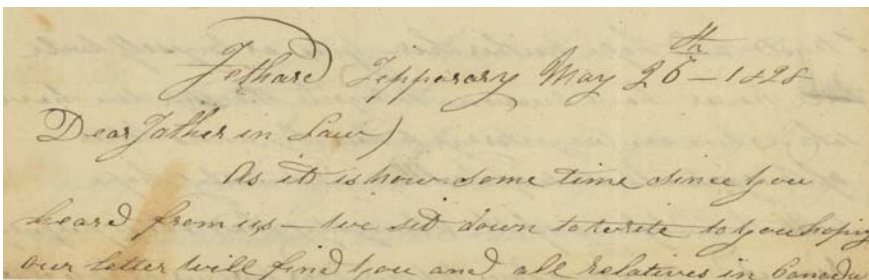 Fethard Tipperary May 26th - 1828
Dear Father in Law)
As it is now some time since you
heard from us - we sit down to write to you hoping
our letter will find you and all relatives in Canada